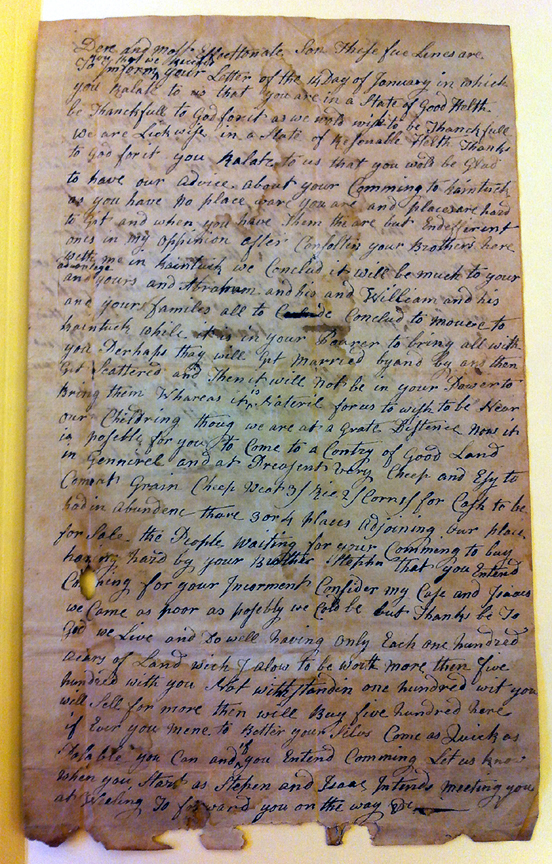 Dere and most Affectionate Son These fue Lines are
to inform you that we Received your Letter of the 14 Day of January in which
you Ralate to us that you are in a State of Good Helth
be Thanckfull to God for it as we wold wish to be Thanckfull
we are Lickwise in a State of Resonable Helth Thanks
to God for it you Ralate to us that you wold be Glad
to have our advice about your Comming to kaintuck
as you have no place ware you are and places are hard
to Get and when you have Them the are but Endefferint
ones in my oppinion after Consolten your Brothers here
with me in kaintuck we Conclud it will be much to your
advantage and yours and Abraham and his and William and his
and your familes all to Conclud to mouve to
kaintuck while it is in your Pouer to bring all with
you Perhaps thay will Get married by and by and then
Get scattered and Then it will not be in your Power to
Bring them Whareas it is Nateril for us to wish to be Near
our Childring thoug we are at a Grate Distence now it
is posible for you to Come to a Contry of Good Land
in Gennirel and at Preasent very Cheep and Esy to
Comat Grain Cheep Weat 3/ Rie 2/ Corn 1/ for Cash to be
had in abundenc thare 3 or 4 places adjoining our place
for Sale the People waiting for your Comming to buy
hard by your Brother Stephn that you Entend
Coming for your Incorment Consider my Case and Isaacs
we Came as poor as posebly we Cold be but Thanks be To
God we Live and Do will having only Each one hundred
acars of Land wich I alow to be worth more then five
hundred with you Not withstandin one hundred wit you
will Sell for more then will Buy five hundred here
if Ever you mene to Better your Selvs Come as Quick as
Posable you Can and if you Entend Comming Let us know
when you Start as Stephen and Isaac Intends meeting you
at Weeling To forward you on the way &c